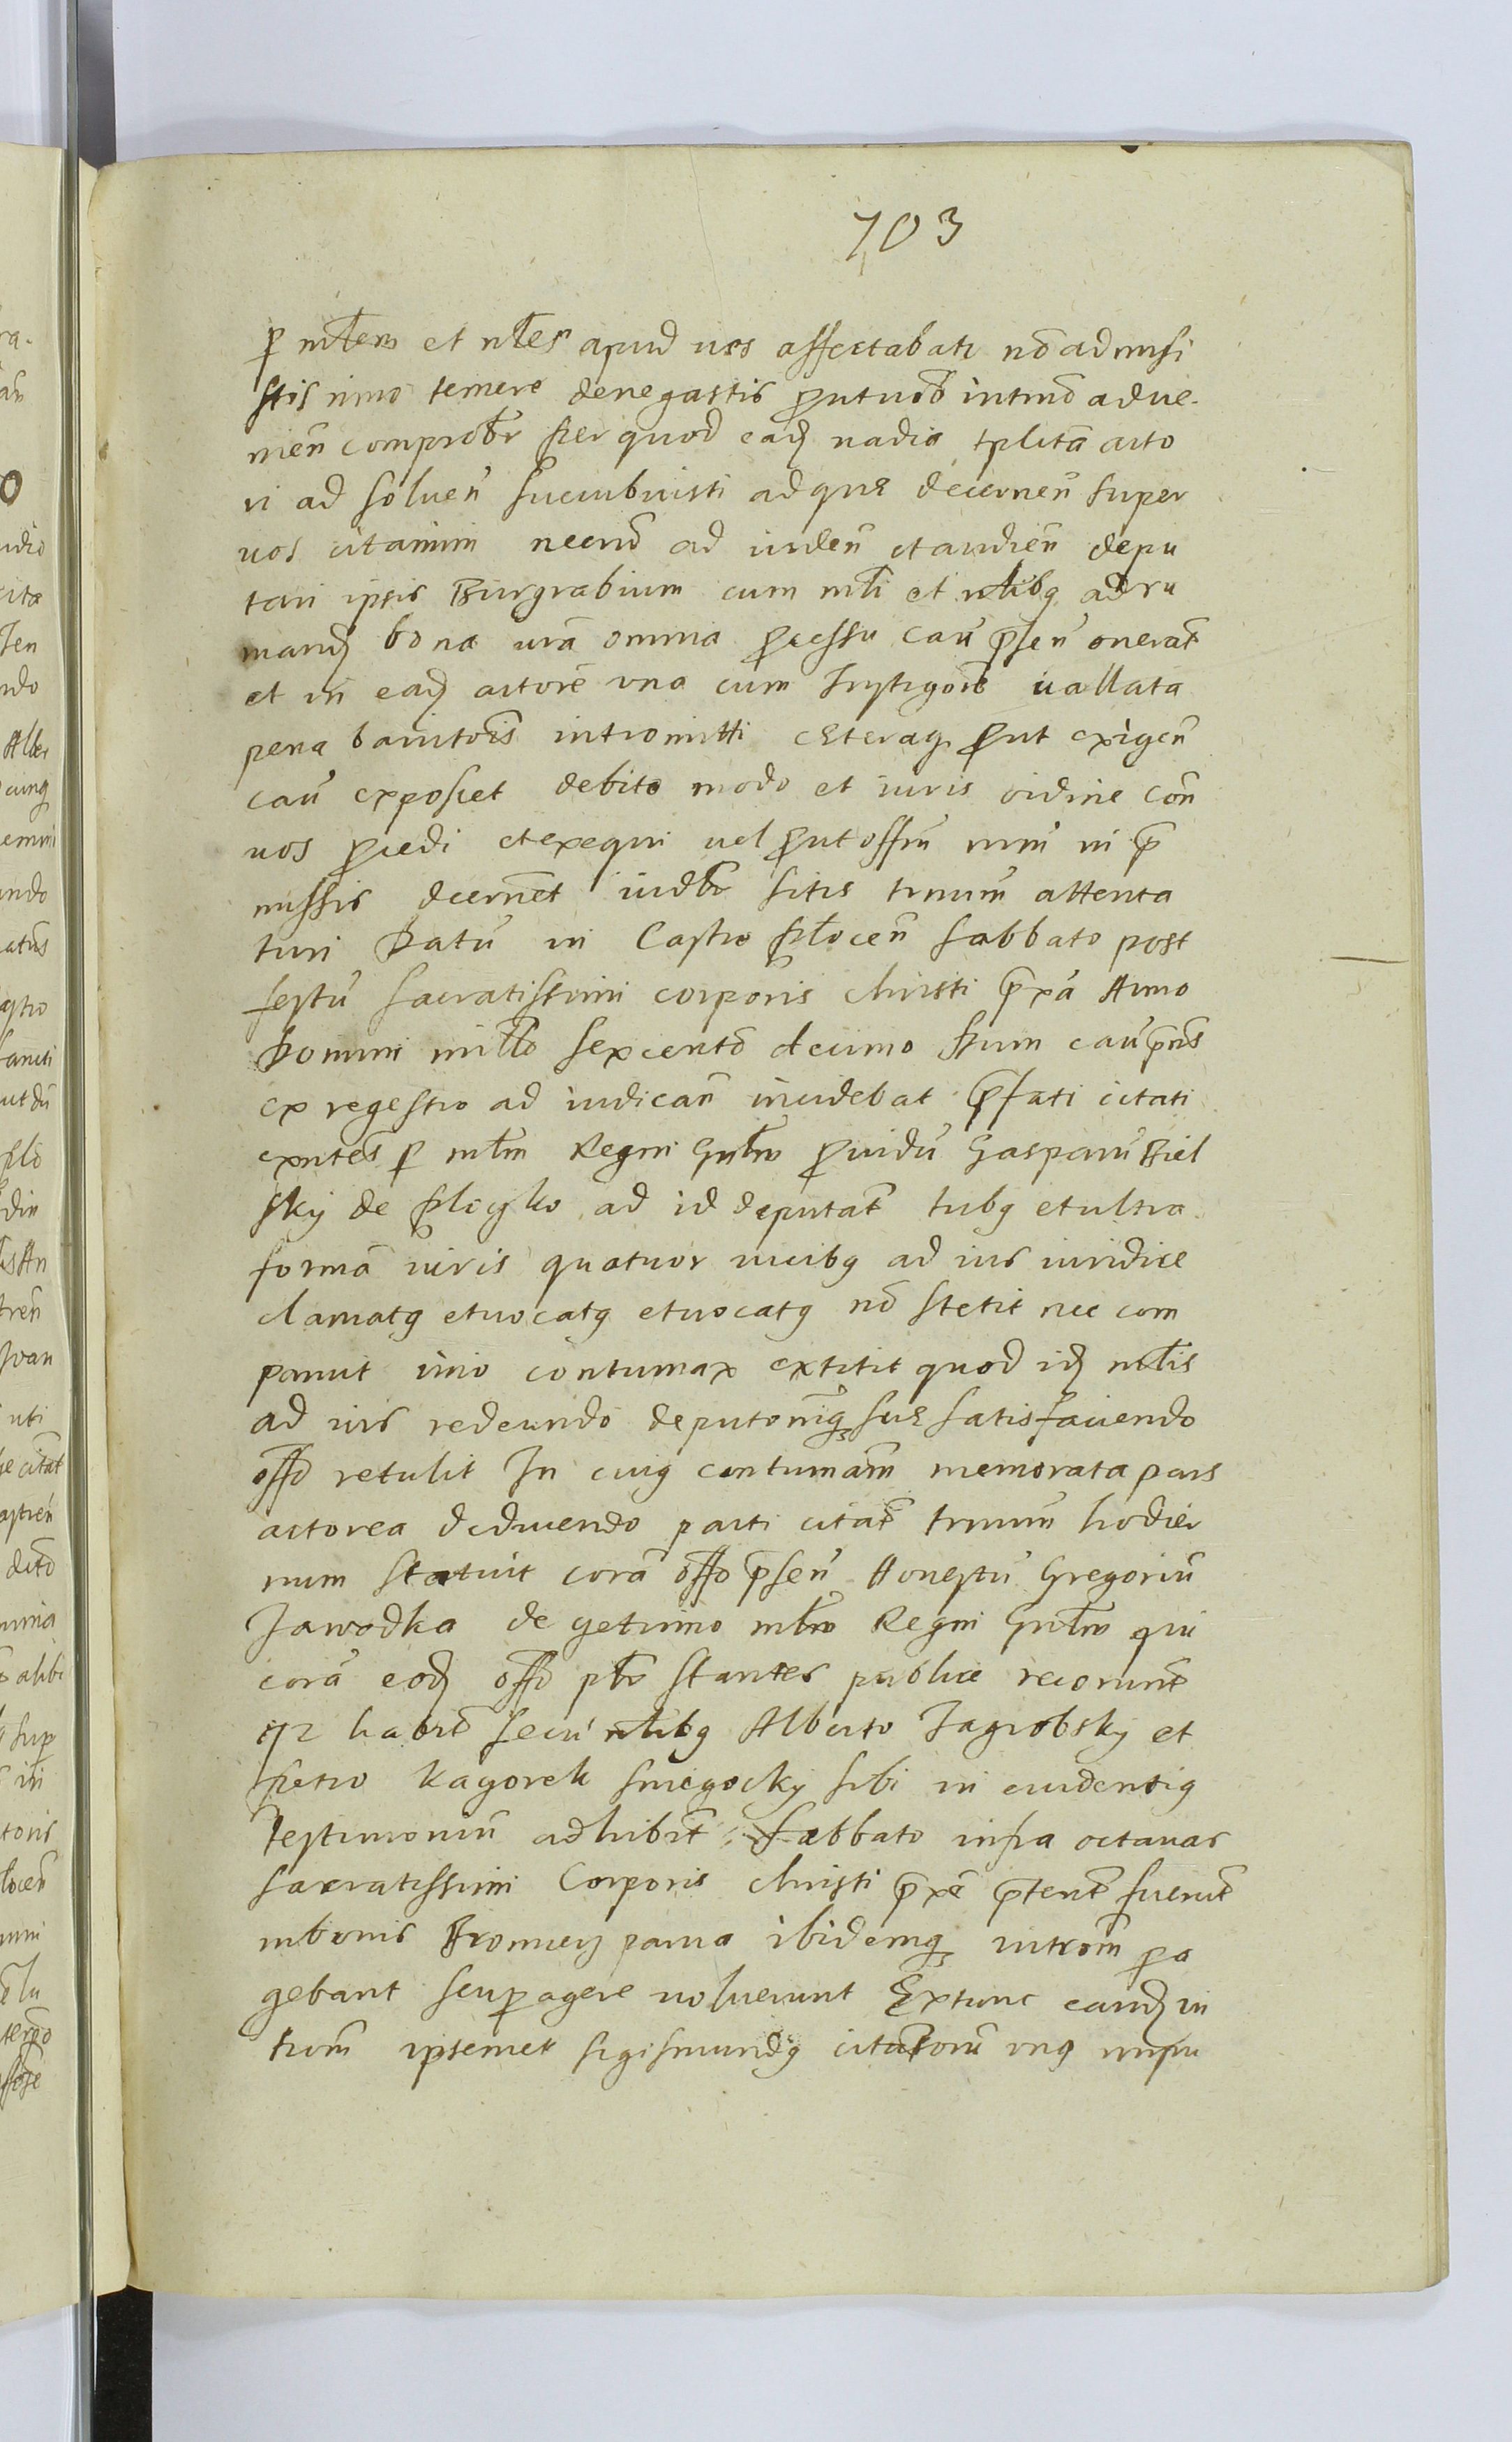 703
ꝑ mltem et nles apud vos affectabatr nō admisi
stis imo temere denegastis prout vob intmō adve-
nien comprobr Per quod eadȝ vadia tplita acto
ri ad solven succubuisti ad quæ decernen super
vos citamini necnō ad viden et audien depu
tari ipsis Burgrabium cum mli et nlibꝫ ad ru
mandȝ bona vrā omnia processu cau p̄sen onerat
et in eadȝ actorē una cum Instigore vallata
pena banitōis intromitti cæteraqꝫ prout exigen
cau exposcet debito modo et iuris ordine con
vos procedi et exequi vel prout offm nrm in p̄
missis decernet iudr sitis trmum attenta
turi Datū in Castro Plocen Sabbato post
festū Sacratissimi corporis christi p̄xā Anno
Domini millo sexcento decimo Dum cau p̄ns
ex regestro ad iudican incidebat p̄fati citati
exntes ꝑ mlm Regni Gnlem providū Gasparū Biel
sky de ad id deputat tribꝫ et ultra
formā iuris quatuor vicibꝫ ad ius iuridice
clamatꝫ et vocatꝫ et vocatꝫ nō stetit nec com
paruit imo contumax extitit quod idȝ mlis
ad ius redeundo deputoniqꝫ suæ satisfaciendo
offo retulit In cuiꝫ contumam memorata pars
actorea deducendo parti citat trmum hodier
num statuit corā offo p̄sen Honestū Gregoriū
Jawodka de mlem Regni Gnlem qui
corā eodȝ offo pli stantes publice recorunt
qz habit secū nlibꝫ Alberto Zagrobsky et
Petro Kaczorek Sniegocky sibi in evidentiꝫ
Testimoniū adhibit Sabbato infra octavas
Sacratissimi Corporis christi p̄xe p̄terit fuerut
in bonis parva ibidemqꝫ introm ꝑa
gebant seu ꝑagere voluerunt Extunc eandȝ in
trom ipsemet Sigismundꝫ citatorū unꝫ impu